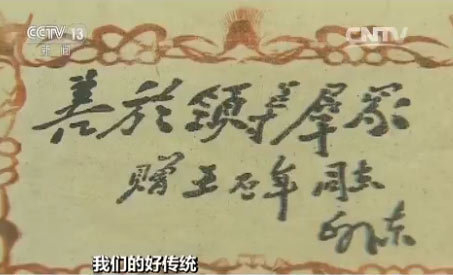 CCTV 13
新闻
CNTV
善於領导羣眾
赠王丕年同志
毛泽东
我们的好传统